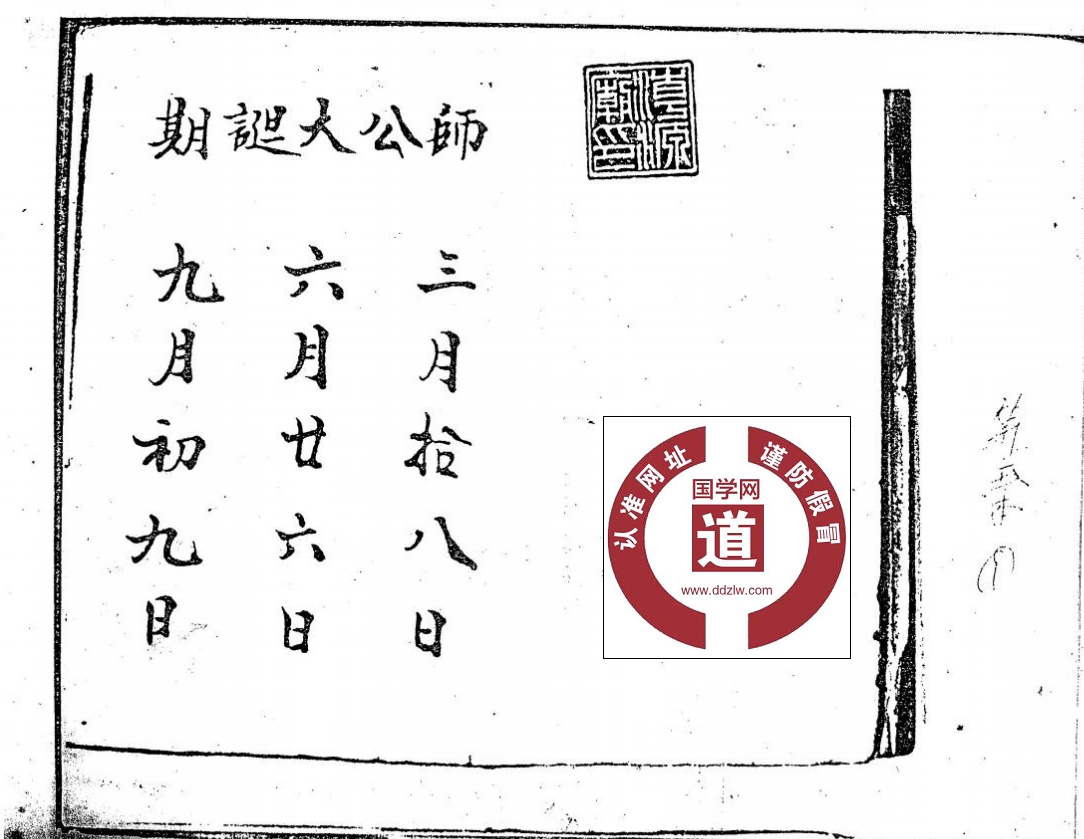 師公大誕期
三月拾八日
六月廿六日
九月初九日
认准网址
谨防假冒
国学网
道
www.ddzlw.com